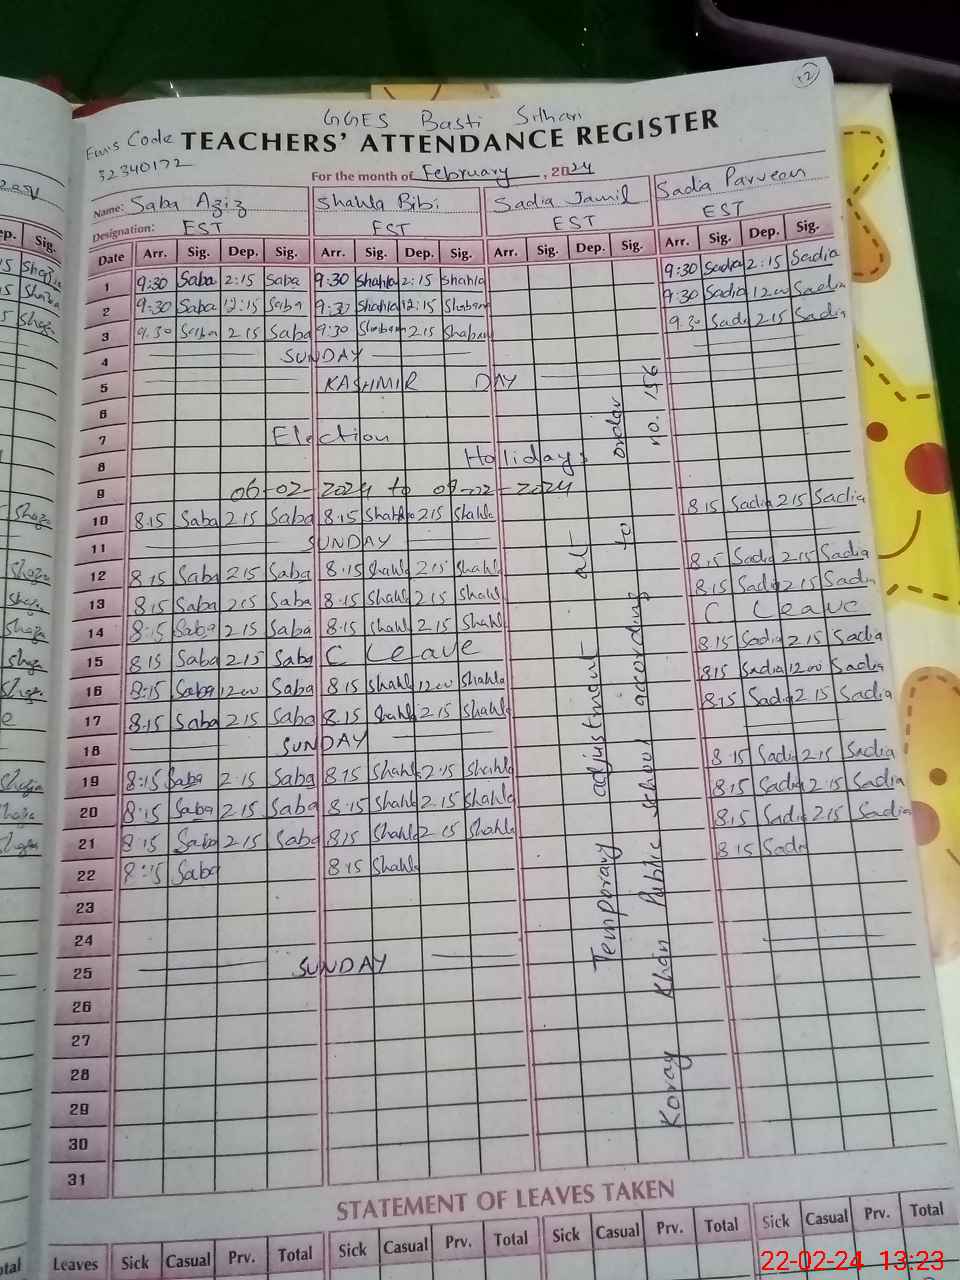 12
GGES Basti Srlhan
Ems Code TEACHERS' ATTENDANCE REGISTER
32340172
For the month of February, 2024
Name: Saba Aziz Shahla Bibi Sadia Jamil Sadia Parveen
Designation: EST EST EST EST
Date Arr. Sig. Dep. Sig. Arr. Sig. Dep. Sig. Arr. Sig. Dep. Sig. Arr. Sig. Dep. Sig.
1 9:30 Saba 2:15 Saba 9:30 Shahla 2:15 Shahla 9:30 Sadia 2:15 Sadia
2 9:30 Saba 12:15 Saba 9:30 Shahla 12:15 9:30 Sadia 1200 Sadia
3 9.30 Saba 2 15 Saba 9:30 2 15 9.30 Sadia 2 15 Sadia
4 SUNDAY
5 KASHMIR DAY
6
7 Election
8 Holidays
9 06-02-2024 to 09-02-2024
10 8:15 Saba 2 15 Saba 8:15 Shahla 2 15 Shahla 8 15 Sadia 2 15 Sadia
11 SUNDAY
12 8 15 Saba 2 15 Saba 8:15 Shahla 2:15 Shahla 8:15 Sadia 2 15 Sadia
13 8 15 Saba 2 15 Saba 8:15 Shahla 2 15 Shahla 8 15 Sadia 2 15 Sadia
14 8:15 Saba 2 15 Saba 8:15 Shahla 2 15 Shahla C Leave
15 8 15 Saba 2 15 Saba C Leave 8 15 Sadia 2 15 Sadia
16 8:15 Saba 1200 Saba 8 15 Shahla 1200 Shahla 8 15 Sadia 1200 Sadia
17 8:15 Saba 2 15 Saba 8.15 Shahla 2 15 Shahla 8:15 Sadia 2 15 Sadia
18 SUNDAY
19 8:15 Saba 2:15 Saba 8:15 Shahla 2:15 Shahla 8:15 Sadia 2:15 Sadia
20 8:15 Saba 2 15 Saba 8:15 Shahla 2 15 Shahla 8:15 Sadia 2 15 Sadia
21 8:15 Saba 2 15 Saba 8:15 Shahla 2 15 Shahla 8:15 Sadia 2 15 Sadia
22 8:15 Saba 8:15 Shahla 8:15 Sadia
23
24
25 SUNDAY
26
27
28
29
30
31
Temporary adjustment at
Koray Khan Public School according to
order no. 156
STATEMENT OF LEAVES TAKEN
Leaves Sick Casual Prv. Total Sick Casual Prv. Total Sick Casual Prv. Total Sick Casual Prv. Total
22-02-24 13:23